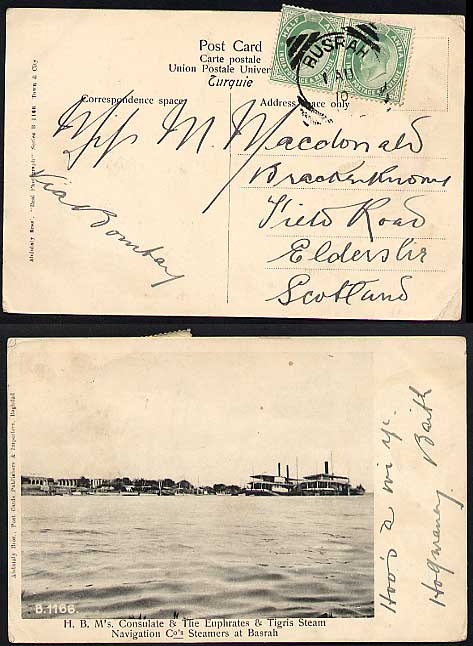 Post Card
Carte postale
Union Postale Univer
Turquie
Correspondence space
Address space only
HALF ANNA
INDIA POSTAGE & REVENUE
BUSRAH
1 AP
10
Miss M. Macdonald
Brackenknowe
Field Road
Elderslie
Scotland
Via Bombay
Abdulaly Bros'. "Real Photograph" Series B 1166 Town & City
Abdulaly Bros., Post Cards Publishers & Importers, Baghdad
B.1166.
H. B. M's. Consulate & The Euphrates & Tigris Steam
Navigation Co's Steamers at Basrah
Hoo's a' wi' ye.
Hogmanay